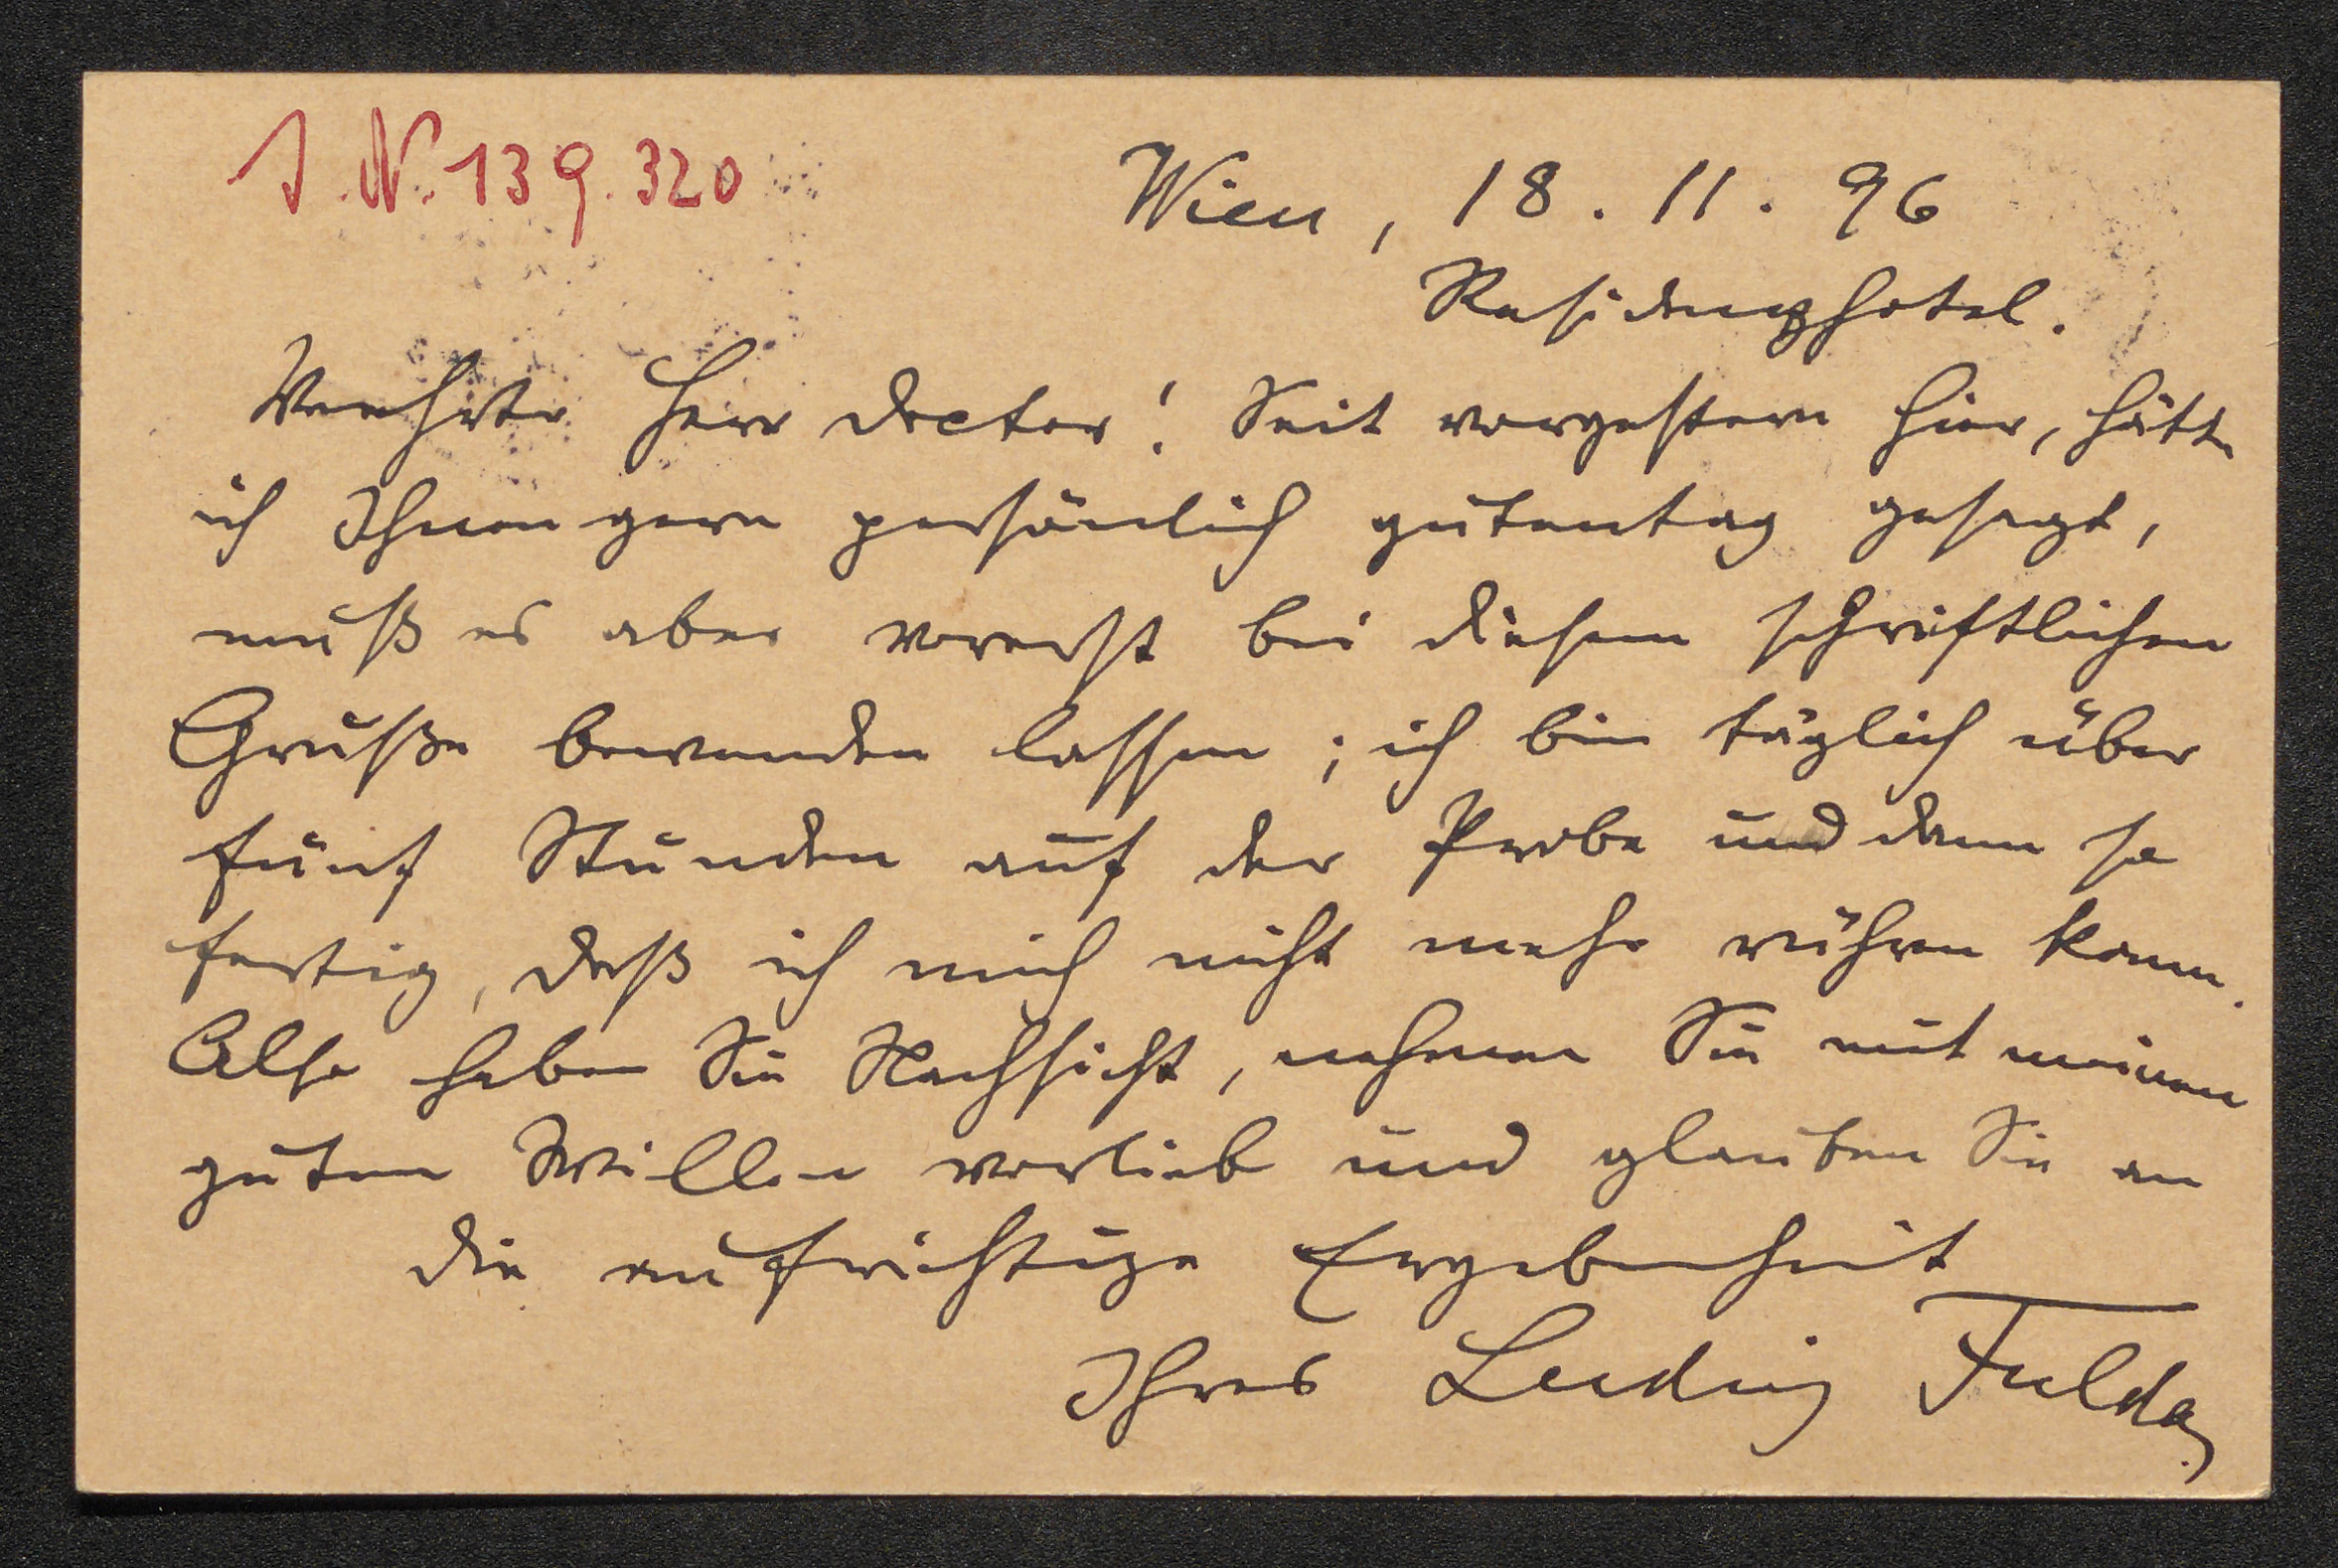 I.N. 139.320
Wien, 18. 11. 96
Residenzhotel.
Verehrter Herr Doctor! Seit vorgestern hier, hätte
ich Ihnen gern persönlich gutentag gesagt,
muß es aber vorerst bei diesem schriftlichen
Gruße bewenden lassen; ich bin täglich über
fünf Stunden auf der Probe und dann so
fertig, daß ich mich nicht mehr rühren kann.
Also haben Sie Nachsicht, nehmen Sie mit meinem
guten Willen vorlieb und glauben Sie an
die aufrichtige Ergebenheit
Ihres Ludwig Fulda